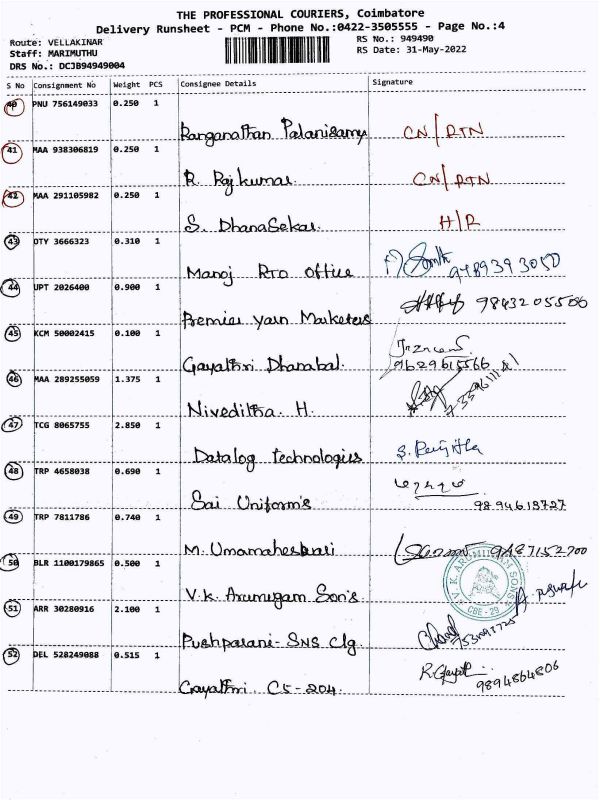 THE PROFESSIONAL COURIERS, Coimbatore
Delivery Runsheet - PCM - Phone No.:0422-3505555 - Page No.:4
Route: VELLAKINAR
RS No.: 949490
Staff: MARIMUTHU
RS Date: 31-May-2022
DRS No.: DCJB94949004
S No Consignment No Weight PCS Consignee Details Signature
40 PNU 756149033 0.250 1
Ranganathan Palanisamy CN/RTN
41 MAA 938306819 0.250 1
R. Rajkumar CN/RTN
42 MAA 291105982 0.250 1
S. DhanaSekar H/R
43 DTY 3666323 0.310 1
Manoj RTO Office 9489393050
44 UPT 2026400 0.900 1
Premier yarn Marketers 9843205506
45 KCM 50002415 0.100 1
Gayathri Dhanabal 9629615566
46 MAA 289255059 1.375 1
Niveditha. H.
47 TCG 8065755 2.850 1
Datalog Technologies
48 TRP 4658038 0.690 1
Sai Uniform's 9894618727
49 TRP 7811786 0.740 1
M. Umamaheshwari 9487152700
50 BLR 1100179865 0.500 1
V.K. Arumugam Son's V. K. ARUMUGAM SONS CBE - 29
51 ARR 30280916 2.100 1
Pushparani - SNS Clg
52 DEL 528249088 0.515 1
Gayathri. C5-204. R. Gayatri 9894864806